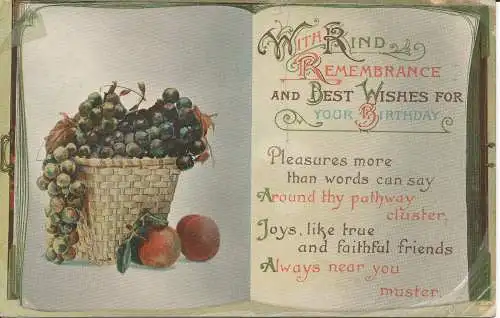 With Kind
Remembrance
and Best Wishes for
your Birthday
Pleasures more
than words can say
Around thy pathway
cluster,
Joys, like true
and faithful friends
Always near you
muster.